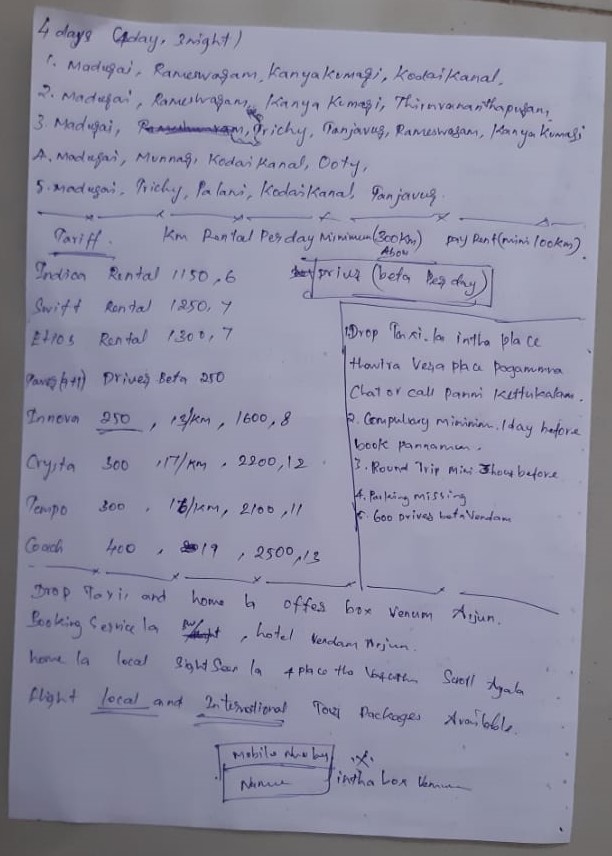 4 days (4day, 3night)
1. Madurai, Rameswaram, Kanyakumari, Kodaikanal,
2. Madurai, Rameshwaram, Kanya Kumari, Thiruvananthapuram
3. Madurai, Trichy, Tanjavur, Rameswaram, Kanya Kumari
4. Madurai, Munnar, Kodaikanal, Ooty,
5. madurai, Trichy, Palani, Kodaikanal, Tanjavur.
Tariff. Km Rental Per day Minimum (300km) pay Rent (mini 100km).
Above
Indica Rental 1150, 6
Driver (beta Per day)
Swift Rental 1250, 7
Etios Rental 1300, 7
(4+1) Driver Beta 250
Innova 250, 13/km, 1600, 8
Crysta 300, 17/km, 2200, 12
Tempo 300, 18/km, 2100, 11
Coach 400, 19, 2500, 13
1. Drop Taxi. la intha place
thavira Vera place poganumna
Chat or call panni kettukalam.
2. Compulsary minimum. 1day before
book pannanum.
3. Round Trip Mini 3hour before
4. Parking missing
5. 600 Driver beta Vendam
Drop Taxi and home la offer box venum Arjun.
Booking Service la , hotel Vendam Arjun.
home la local Sight Seen la 4 place tha Scroll Agala
flight local and International Tour Packages Available.
Mobile Number
Name
intha box Venum